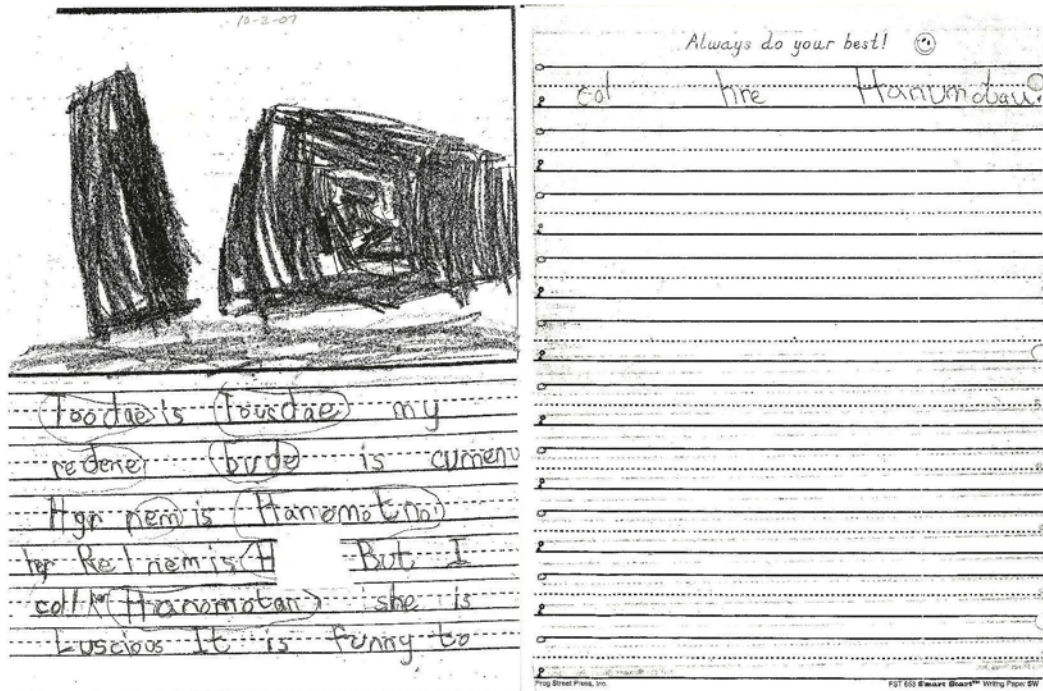 10-2-07
Toodae is Tousdae my
redene bude is cumenu
Hgr nem is Hanomotno
her Rel nem is H But I
coll her Hanomotan she is
Luscious It is funny to
Always do your best!
col hre Hanumotau.
Frog Street Press, Inc.
FST 653 Smart Start™ Writing Paper SW